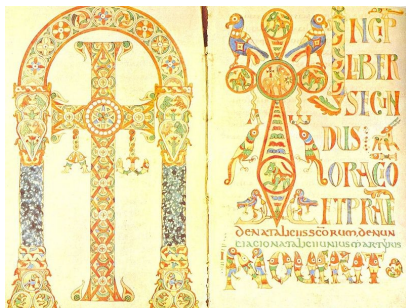 INCP
LIBER
SECUN
DUS
ORACO
ET PRAE
DENATALICIIS SCORUM. DENUN
TIACIO NATALICII UNIUS MARTYRIS